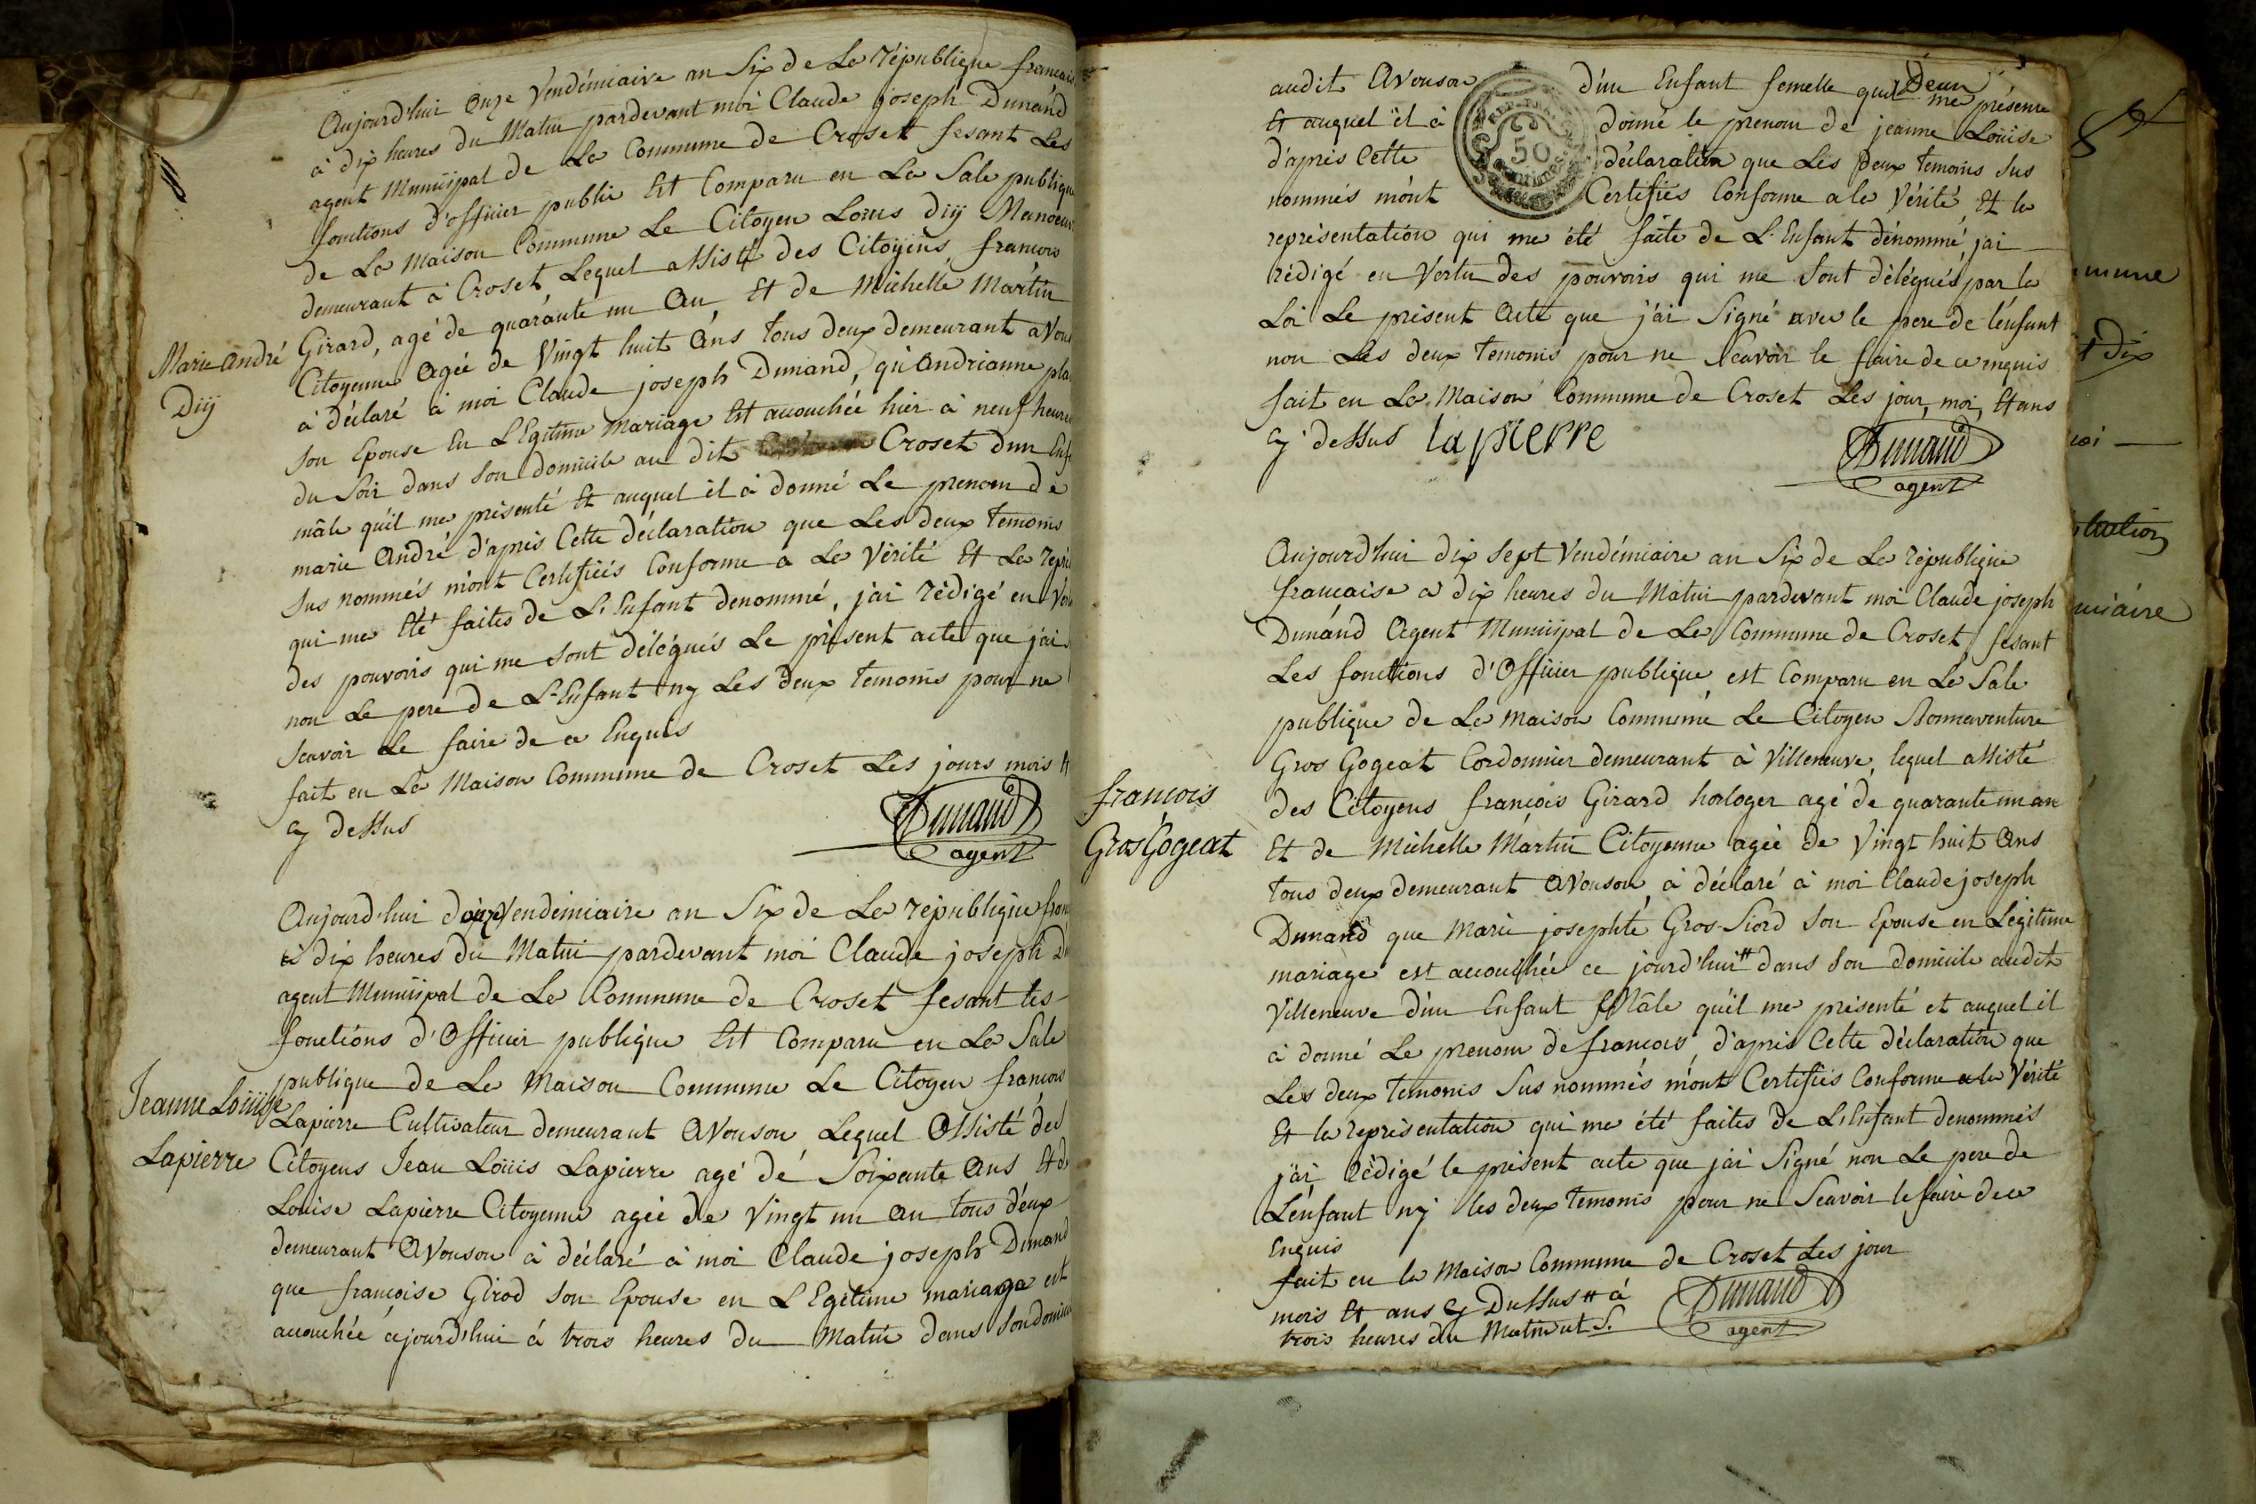 Aujourd'hui Onze Vendémiaire an Six de La république francais
à dix heures du Matin pardevant moi Claude joseph Dunand
agent Municipal de La Commune de Croset fesant Les
fonctions d'officier public Est Comparu en La Sale publique
de La Maison Commune Le Citoyen Louis Diÿ Manoeu
demeurant à Croset Lequel assisté des Citoÿens francois
Girard, agé de quarante un An, Et de Michelle Martin
Citoyenne agée de Vingt huit Ans tous deux demeurant a Vou
à déclaré à moi Claude joseph Dunand, qu'andrianne pla
Son Epouse En LEgitime Mariage Est accouchée hier à neuf heure
du Soir dans Son domicile au dit Croset d'un Enf
mâle qu'il me présenté Et auquel il à donné Le prenom de
marie André d'apris Cette déclaration que Les deux temoins
Sus nommés m'ont Certifiés Conforme a La Vérité Et La repré
qui me Eté faites de L'Enfant denommé, j'ai rédigé en Ver
des pouvoirs qui me sont délégués Le présent acte que j'ai
non Le pere de L'Enfant ny Les deux temoins pour ne
Scavoir Le faire de ce Enquis
fait en La Maison Commune de Croset Les jours mois Et
cy dessus
Dunand
agent
Marie André
Diÿ
Aujourd'hui douze Vendémiaire an Six de La république fran
à dix heures du Matin pardevant moi Claude joseph Du
agent Municipal de La Commune de Croset fesant les
fonctions d'Officier publique Est Comparu en La Sale
publique de La Maison Commune Le Citoyen francois
Lapierre Cultivateur demeurant AVouson Lequel Assisté des
Citoyens Jean Loüis Lapierre agé de Soixante Ans Et de
Louise Lapierre Citoyenne agée de Vingt un an tous deux
demeurant AVouson à déclaré à moi Claude joseph Dunand
que françoise Girod Son Epouse en LEgitime mariage est
accouchée ajourd'hui à trois heures du Matin dans Son domici
Jeanne Loüise
Lapierre
audit AVouson d'un Enfant femelle qu'il me présenté
Et auquel il à donné le prenom de jeanne Loüise
d'apris Cette déclaration que Les deux temoins Sus
nommés m'ont Certifiés Conforme a la Vérité Et la
représentation qui me été faite de L'Enfant dénommé, j'ai
rédigé en Vertu des pouvoirs qui me Sont délégués par la
Loi Le présent Acte que j'ai Signé avec le pere de l'enfant
non Les deux temoins pour ne Scavoir le faire de ce enquis
fait en La Maison Commune de Croset Les jour, moi, Et ans
cy dessus la pierre
Dunand
agent
REP. FRA.
50
Centimes
Aujourd'hui dix Sept Vendémiaire an Six de La république
francaise a dix heures du Matin pardevant moi Claude joseph
Dunand Agent Municipal de La Commune de Croset fesant
Les fonctions d'Officier publique est Comparu en La Sale
publique de La Maison Commune Le Citoyen Bonnaventure
Gros Gogeat Cordonnier demeurant à Villeneuve, lequel assisté
des Citoyens francois Girard horloger agé de quarante un an
Et de Michelle Martin Citoyenne agée de Vingt huit Ans
tous deux demeurant AVouson à déclaré à moi Claude joseph
Dunand que Marie josephte Gros-Siord Son Epouse en Légitime
mariage est accouchée ce jourd'hui # dans Son domicile audit
Villeneuve d'un Enfant Mâle qu'il me présenté et auquel il
à donné Le prenom de francois, d'apris Cette déclaration que
Les deux temoins Sus nommés m'ont Certifiés Conforme a la Vérité
Et la représentation qui me été faites de L'Enfant denommés
j'ai rédigé le présent acte que j'ai Signé non Le pere de
L'enfant ny les deux temoins pour ne Scavoir le faire de ce
Enquis
fait en la Maison Commune de Croset Les jour
mois Et ans cy Dussus # à
trois heures du Matin
Dunand
agent
francois
Gros Gogeat
mune
dix
moi
tation
miaire